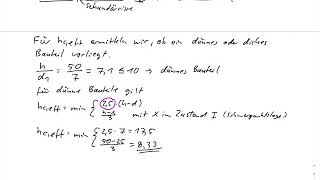 Für hc,eff ermitteln wir, ob ein dünnes oder dickes
Bauteil vorliegt.
h/d1 = 50/7 = 7,1 ≤ 10 → dünnes Bauteil
für dünne Bauteile gilt
hc,eff = min { 2,5 (h-d)
h-x/3 mit X in Zustand I (Schwerpunktslage)
hc,eff = min { 2,5 · 7 = 17,5
50-25/3 = 8,33